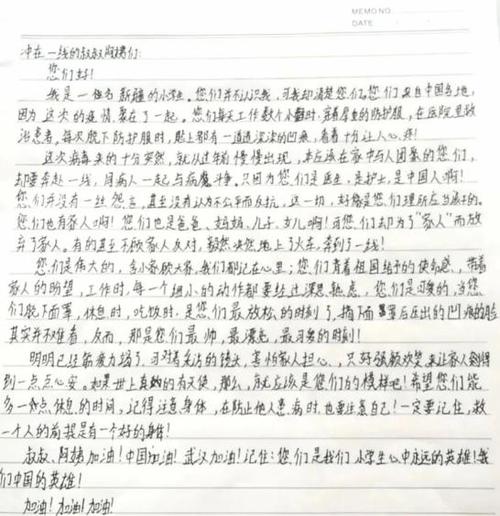 MEMO NO.
DATE
冲在一线的叔叔阿姨们:
您们好!
我是一位名新疆的小学生。您们并不认识我,可我却清楚您们。您们来自中国各地,
因为这次的疫情,聚在了一起。您们每天工作数个小时,穿着厚重的防护服,在医院里救
治患者。每次脱下防护服时,脸上都有一道道深深的凹痕,看着十分让人心疼!
这次病毒来的十分突然,就从过年前慢慢出现,本应该在家中与人团聚的您们,
却要奔赴一线,同病人一起与病魔斗争。只因为您们是医生,是护士,是中国人啊!
您们并没有一丝怨言,甚至没有认为不公平而反抗,这一切,好像是您们理所应当承的。
您们也有家人啊!您们也是爸爸、妈妈、儿子、女儿啊!可您们却为了"家人"而放
弃了家人。有的甚至不顾家人反对,毅然决然地上了火车,奔到了一线!
您们是伟大的,舍小家顾大家,我们都记在心里;您们背着祖国给予的使命感,带着
家人的期望,工作时,每一个细小的动作都要经过深思熟虑,您们是可爱的,当您
们脱下面罩,休息时,吃饭时,是您们最放松的时刻了,摘下面罩后压出的凹痕的脸
其实并不难看,反而,那是您们最帅,最漂亮,最可爱的时刻!
明明已经筋疲力竭了,可对着关洁的镜头,害怕家人担心、,只好强颜欢笑来让家人得
到一点点心安。如果世上真的有天使,那么,就应该是您们的模样吧!希望您们能
多一点休息的时间,记得注意身体,在防止他人患病时,也要注意自己!一定要记住,救
一个人的前提是有一个好的身体!
叔叔、阿姨加油!中国加油!武汉加油!记住:您们是我们小学生心中永远的英雄!我
们中国的英雄!
加油!加油!加油!